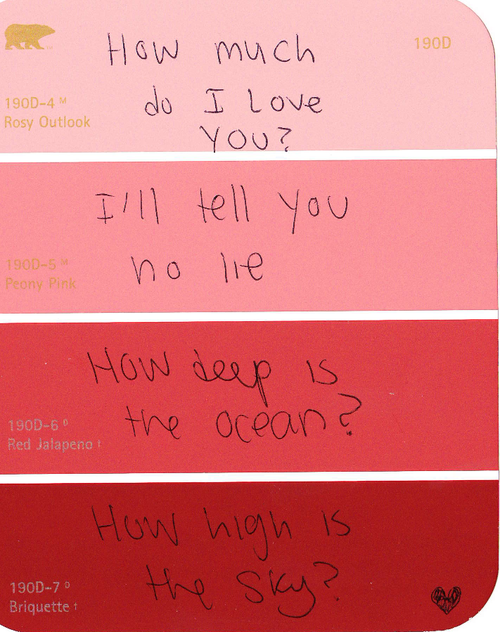 How much
190D
190D-4 M
do I love
Rosy Outlook
YOU?
I'll tell you
190D-5 M
no lie
Peony Pink
How deep is
the ocean?
190D-6 D
Red Jalapeno †
How high is
the sky?
190D-7 D
Briquette †